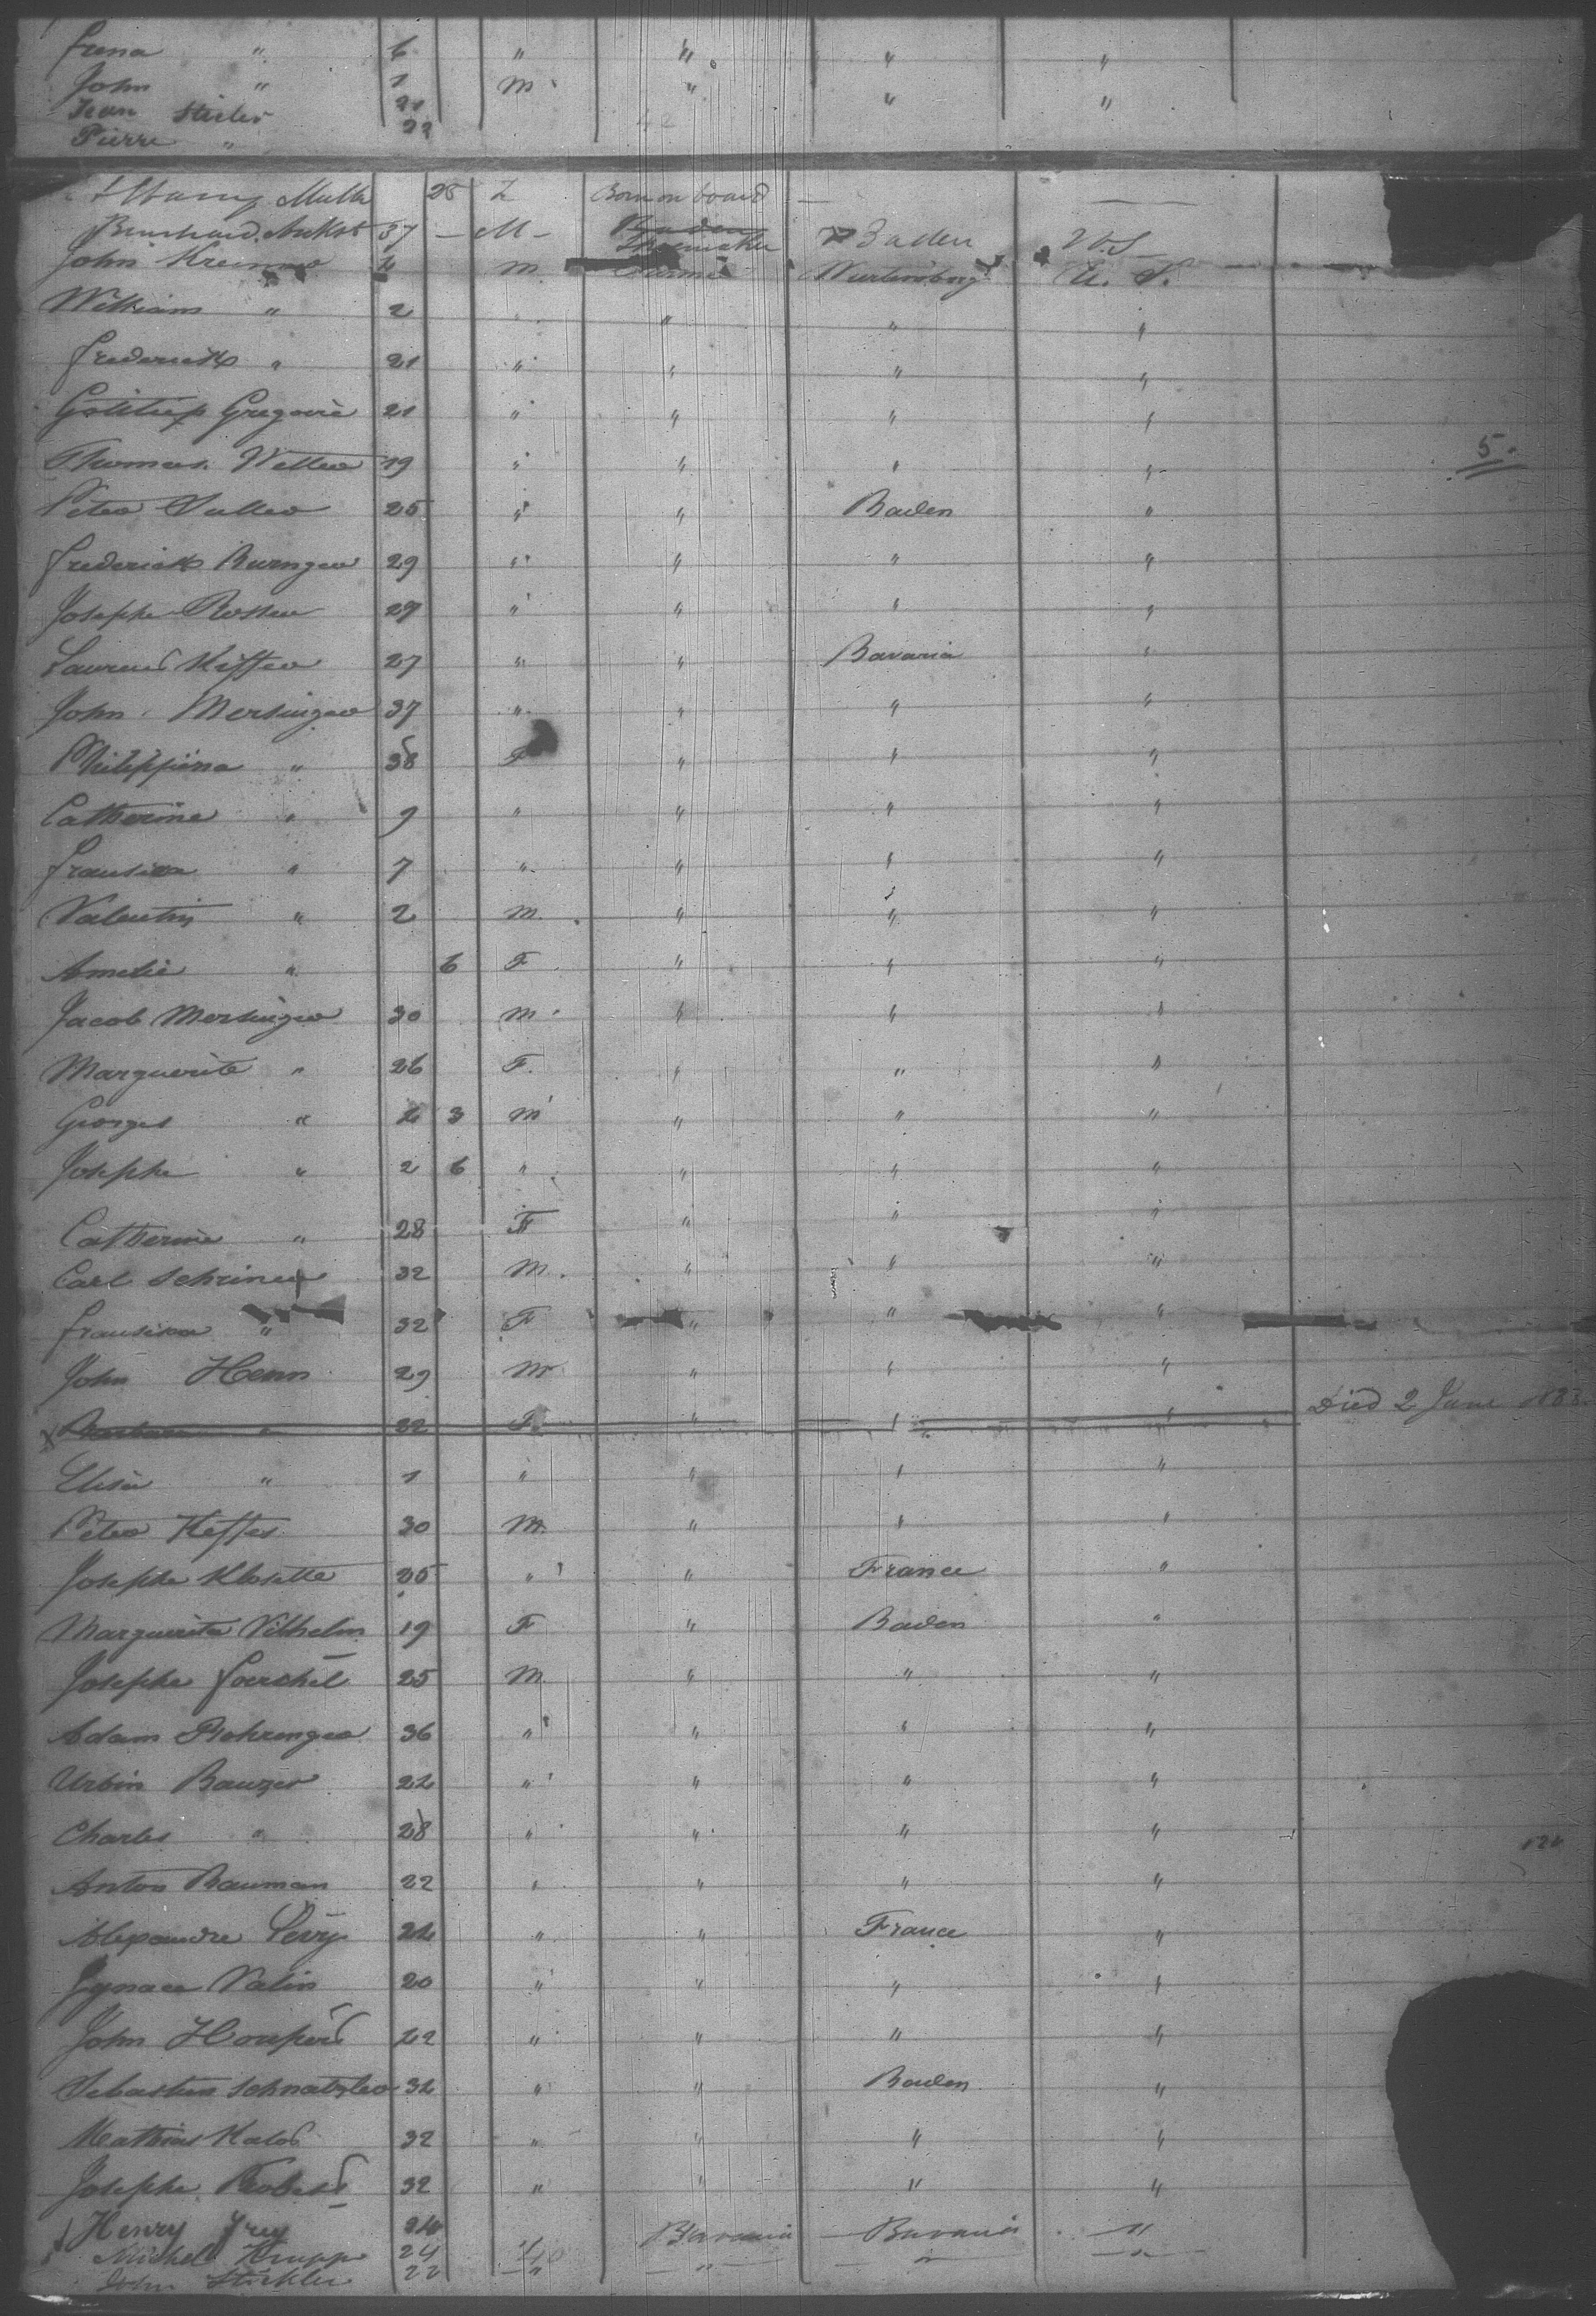 Irena " 6 " " " "
John " 1 m " " "
Jean Stieler 21 " "
Pierre " 22
Mulla 28 Born on board —
Bernhard 37 — M — Shoemaker Baden U.S
John m. Wurtemberg U. S.
William " 2 " " " "
Frederick " 21 " " " "
Gottliep Gregoire 21 " " " "
Thomas Wetter 19 " " " " 5.
Peter Salleo 25 " " Baden "
Frederick Burnger 29 " " " "
Josephe Rosser 27 " " " "
Laurend Kiffer 27 " " Bavaria "
John Mersinger 37 " " " "
Philippina " 38 F " " "
Catherine " 9 " " " "
Fransisca " 7 " " " "
Valentin " 2 m. " " "
Amelie " 6 F " " "
Jacob Mersinger 30 m. " " "
Marguerite " 26 F. " " "
Georges " 4 3 m " " "
Josephe " 2 6 " " " "
Catherine " 28 F " " "
Carl Schriner 32 m. " " "
Fransisca " 32 F " " "
John Henn 29 m " " "
Barbara " 32 F. " " " Died 2 June 183
Elisa " 1 " " " "
Peter Keffer 30 m. " " "
Josephe Klosette 25 " " France "
Marguerite Vilhelm 19 F " Baden "
Josephe Foerchel 25 m. " " "
Adam Rohrenger 36 " " " "
Urbin Bauzer 24 " " " "
Charles " 28 " " " "
Anton Bauman 22 " " " "
Alexandre Levy 24 " " France "
Ignace Valin 20 " " " "
John Houpert 22 " " " "
Sebastien Schnatzler 32 " " Baden "
Mathias Kalos 32 " " " "
Josephe Probest 32 " " " "
Henry Frey 24 Bavaria — Bavaria "
Michel Krupp 24 — " — " — " —
John Stickler 22 — "